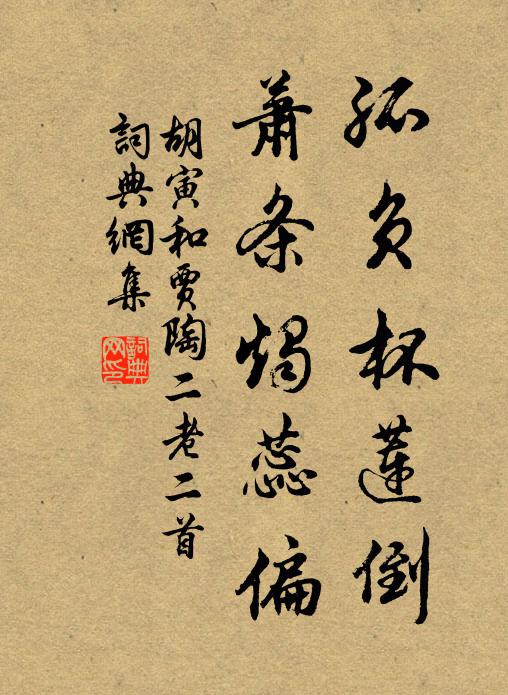 孤负杯莲倒
萧条烛蕊偏
胡寅和贾陶二老二首
詞典網集
詞典
网印